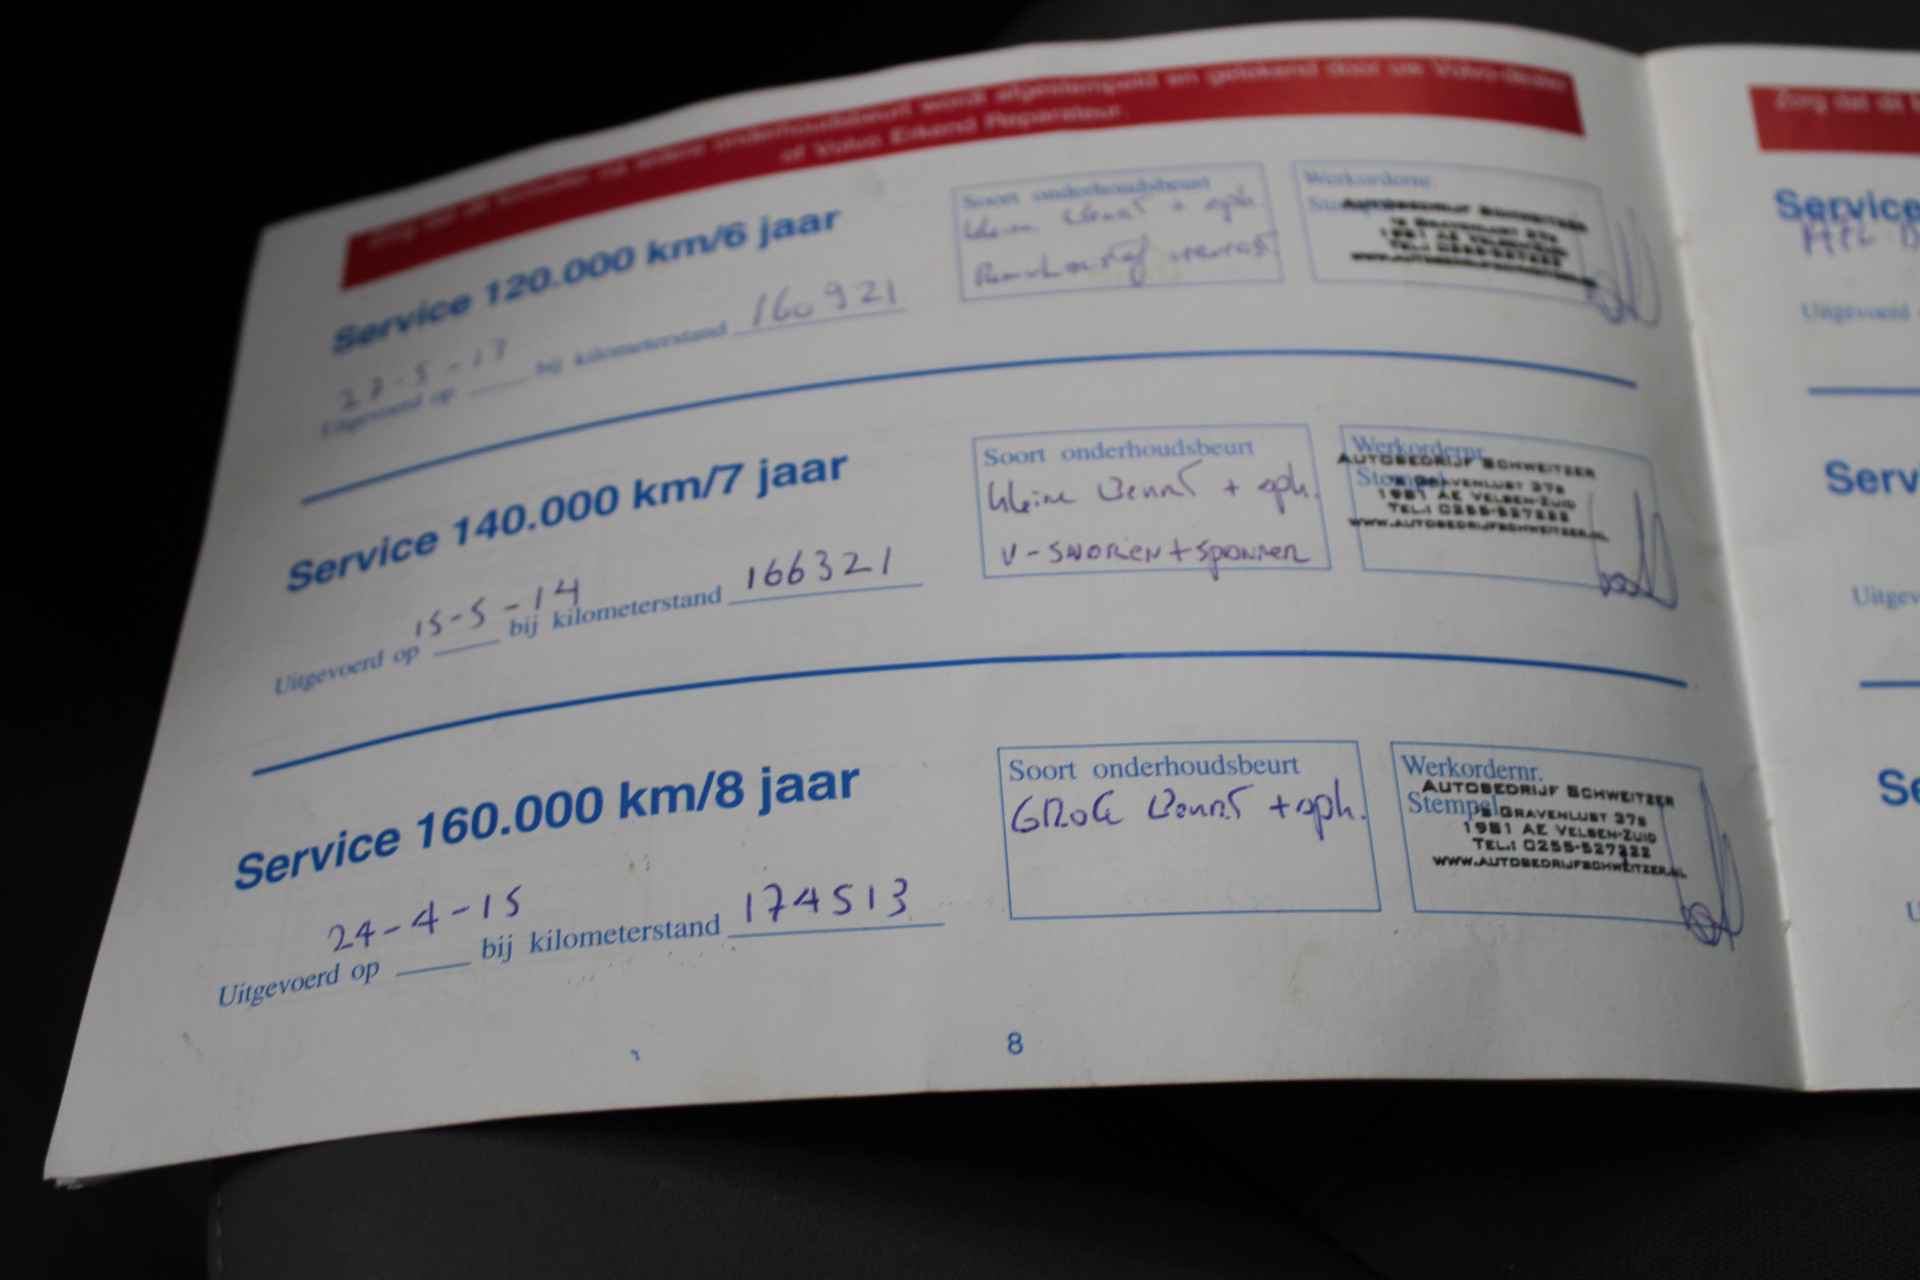 wordt afgestempeld en getekend door uw Volvo-dealer
of Volvo Erkend Reparateur.
Service 120.000 km/6 jaar
Uitgevoerd op 27-5-13 bij kilometerstand 160921
Soort onderhoudsbeurt
kleine beurt + oph.
Werkordernr.
Stempel
AUTOBEDRIJF SCHWEITZER
'S GRAVENLUST 37A
1981 AE VELSEN-ZUID
TEL.: 0255-527222
WWW.AUTOBEDRIJFSCHWEITZER.NL
Service 140.000 km/7 jaar
Uitgevoerd op 15-5-14 bij kilometerstand 166321
Soort onderhoudsbeurt
kleine Beurt + oph.
V-SNOREN + SPANNER
Werkordernr.
Stempel
AUTOBEDRIJF SCHWEITZER
'S GRAVENLUST 37A
1981 AE VELSEN-ZUID
TEL.: 0255-527222
WWW.AUTOBEDRIJFSCHWEITZER.NL
Service 160.000 km/8 jaar
Uitgevoerd op 24-4-15 bij kilometerstand 174513
Soort onderhoudsbeurt
GROTE Beurt + oph.
Werkordernr.
Stempel
AUTOBEDRIJF SCHWEITZER
'S GRAVENLUST 37A
1981 AE VELSEN-ZUID
TEL.: 0255-527222
WWW.AUTOBEDRIJFSCHWEITZER.NL
8
Zorg dat dit
Service
Uitgevoerd
Serv
Uitgev
Se
U